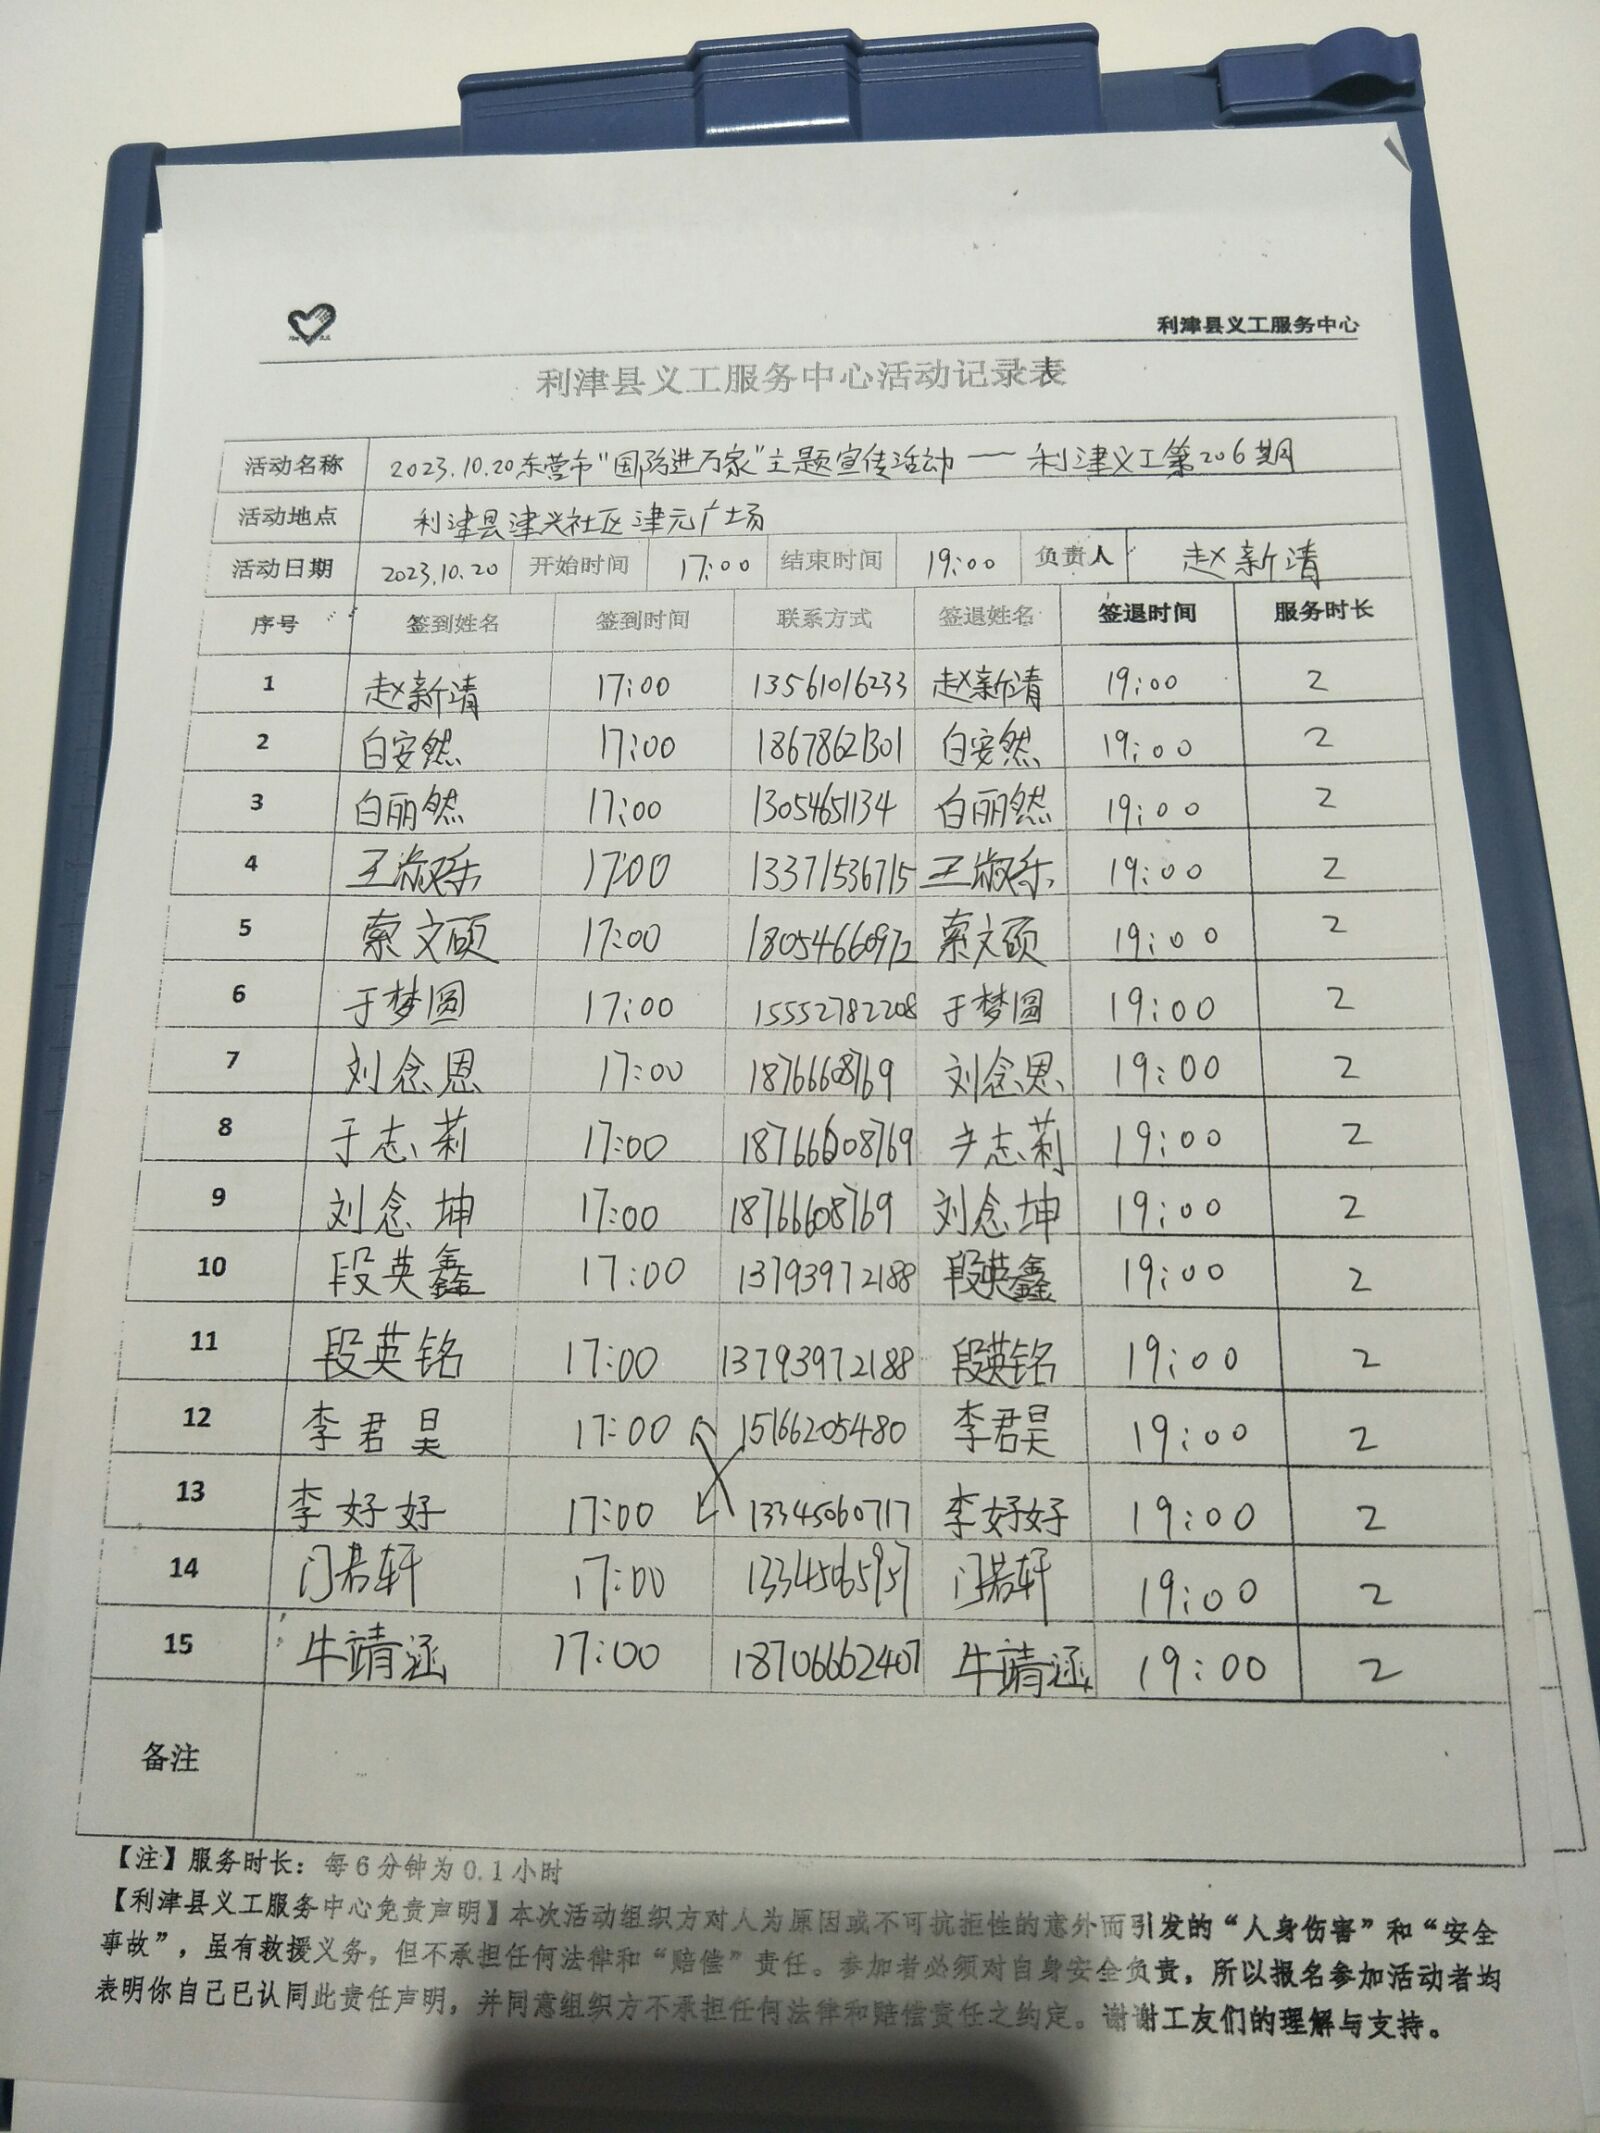 利津县义工服务中心
利津县义工服务中心活动记录表
活动名称 2023.10.20东营市“国防进万家”主题宣传活动——利津义工第206期
活动地点 利津县津兴社区津元广场
活动日期 2023.10.20 开始时间 17:00 结束时间 19:00 负责人 赵新清
序号 签到姓名 签到时间 联系方式 签退姓名 签退时间 服务时长
1 赵新清 17:00 13561016233 赵新清 19:00 2
2 白安然 17:00 18678621301 白安然 19:00 2
3 白丽然 17:00 1305465134 白丽然 19:00 2
4 王淑乐 17:00 13371536715 王淑乐 19:00 2
5 索文硕 17:00 18054660972 索文硕 19:00 2
6 于梦圆 17:00 15552782208 于梦圆 19:00 2
7 刘念恩 17:00 18766608769 刘念恩 19:00 2
8 于志莉 17:00 18766608769 于志莉 19:00 2
9 刘念坤 17:00 18766608769 刘念坤 19:00 2
10 段英鑫 17:00 13793972188 段英鑫 19:00 2
11 段英铭 17:00 13793972188 段英铭 19:00 2
12 李君昊 17:00 15166205480 李君昊 19:00 2
13 李好好 17:00 13345060717 李好好 19:00 2
14 门若轩 17:00 13345065957 门若轩 19:00 2
15 牛靖涵 17:00 18706662407 牛靖涵 19:00 2
备注
【注】服务时长：每6分钟为0.1小时
【利津县义工服务中心免责声明】本次活动组织方对人为原因或不可抗拒性的意外而引发的“人身伤害”和“安全
事故”，虽有救援义务，但不承担任何法律和“赔偿”责任。参加者必须对自身安全负责，所以报名参加活动者均
表明你自己已认同此责任声明，并同意组织方不承担任何法律和赔偿责任之约定。谢谢工友们的理解与支持。